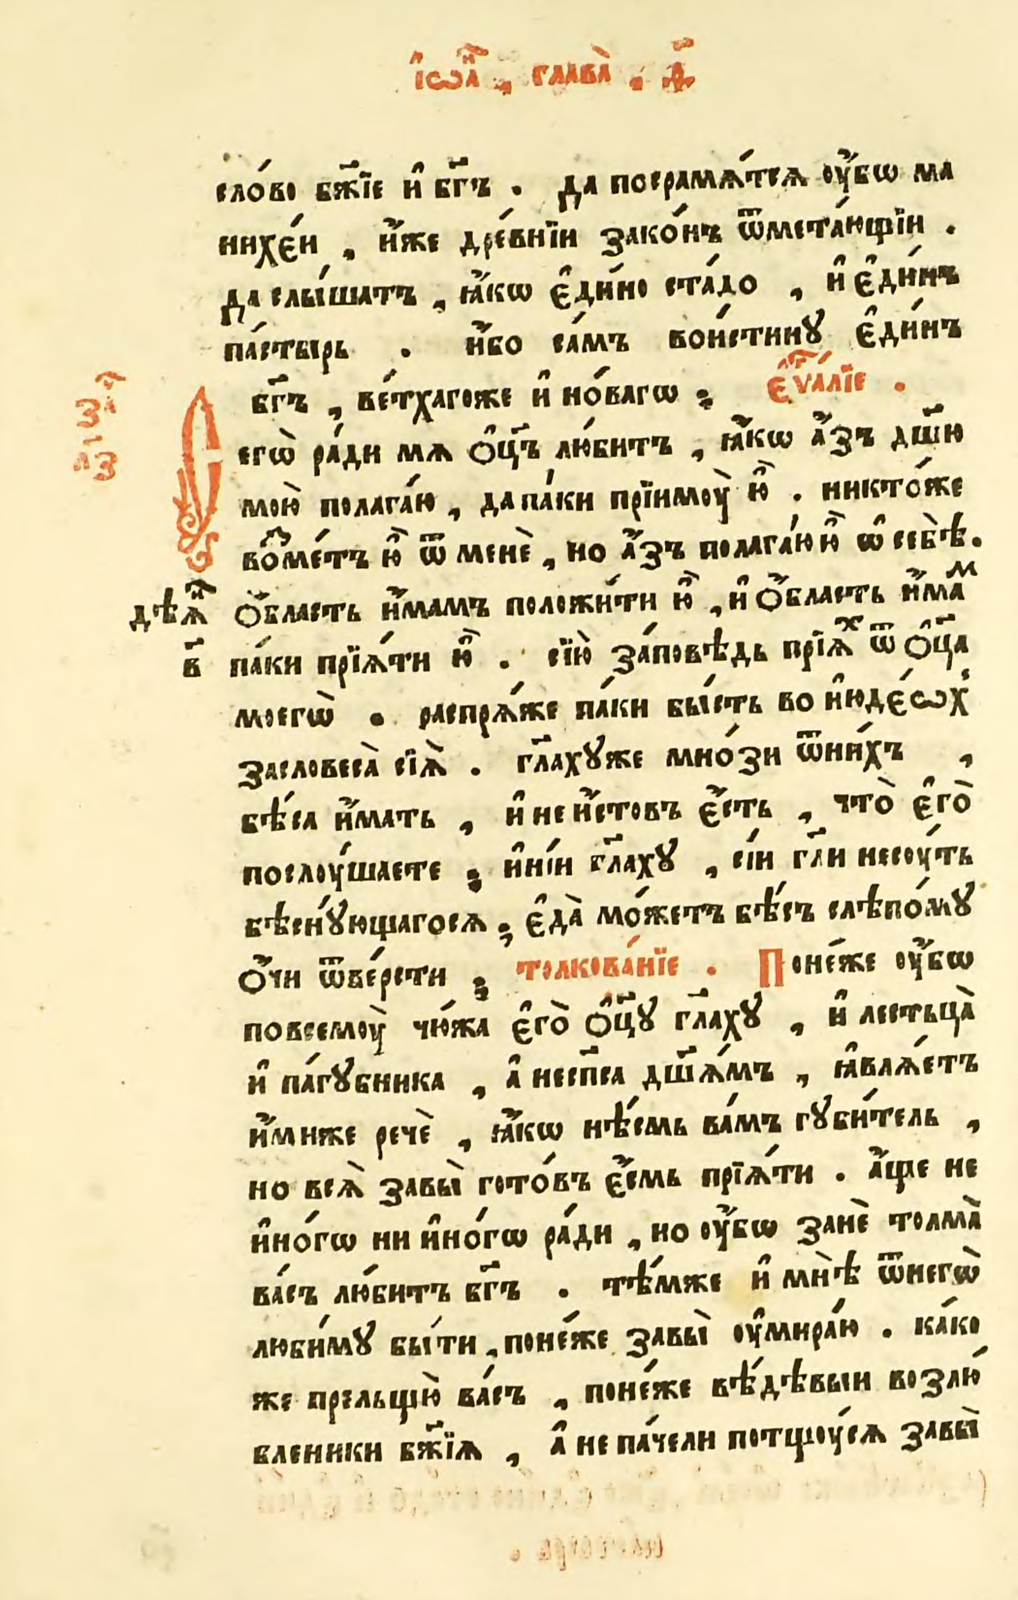 і҆ѡа҃н , глава̀ , ı҃
сло́во бж҃їе и҆ бг҃ъ . да посрамѧ́тсѧ ᲂу҆́бѡ ма
нихє́и , и҆́же дрє́внїи зако́нъ ѿмета́ющїи .
да слы́шатъ , ꙗ҆́кѡ є҆ди́но ста́до , и҆ є҆ди́нъ
па́стырь . и҆́бо са́мъ вои́стинꙋ є҆ди́нъ
бг҃ъ , ве́тхагоже и҆ но́вагѡ ; є҆ѵⷢ҇алїе .
за҃ч л҃з
Сегѡ̀ ра́ди мѧ ѻ҆ц҃ъ лю́битъ , ꙗ҆́кѡ а҆́зъ дш҃ю
мою̀ полага́ю , да па́ки прїимꙋ̀ ю҆̀ . никто́же
во́зметъ ю҆̀ ѿ менѐ , но а҆́зъ полага́ю ю҆̀ ѡ҆ себѣ̀ .
дѣѧ҃н ѻ҆́бласть и҆́мамъ положи́ти ю҆̀ , и҆ ѻ҆́бласть и҆́маⷨ
в҃ па́ки прїѧ́ти ю҆̀ . сїю̀ за́повѣдь прїѧ́х ѿ ѻ҆ц҃а
моегѡ̀ . распрѧ́же па́ки бы́сть во и҆юдє́ѡх
засловеса̀ сїѧ̀ . гл҃ахꙋже мно́зи ѿни́хъ ,
бѣ́са и҆́мать , и҆ не и҆́стовъ є҆́сть , что̀ є҆го̀
послꙋ́шаете ; и҆ні́и гл҃ахꙋ , сі́и гл҃и несꙋ́ть
бѣснꙋ́ющагосѧ , є҆да̀ мо́жетъ бѣ́съ слѣпо́мꙋ
ѻ҆́чи ѿве́рсти ; толкова́нїе . Поне́же ᲂу҆́бѡ
повсемꙋ̀ чю́жа є҆го̀ ѻ҆ц҃ꙋ гл҃ахꙋ , и҆ лестьца̀
и҆ па́гꙋбника , а҆ неспс҃а дш҃а́мъ , ꙗ҆влѧ́етъ
и҆́мниже речѐ , ꙗ҆́кѡ нѣ́смь ва́мъ гꙋби́тель ,
но всѧ̀ завы̀ гото́въ є҆́смь прїѧ́ти . а҆́ще не
и҆но́гѡ ни и҆но́гѡ ра́ди , но ᲂу҆́бѡ занѐ толма̀
ва́съ лю́битъ бг҃ъ . тѣ́мже и҆ мнѣ̀ ѿнегѡ̀
люби́мꙋ бы́ти , поне́же завы̀ ᲂу҆мира́ю . ка́ко
же прельщю̀ ва́съ , поне́же вѣ́дѣвыи возлю́
бленики бж҃їѧ , а҆ не па́чели потщꙋ́сѧ завы̀